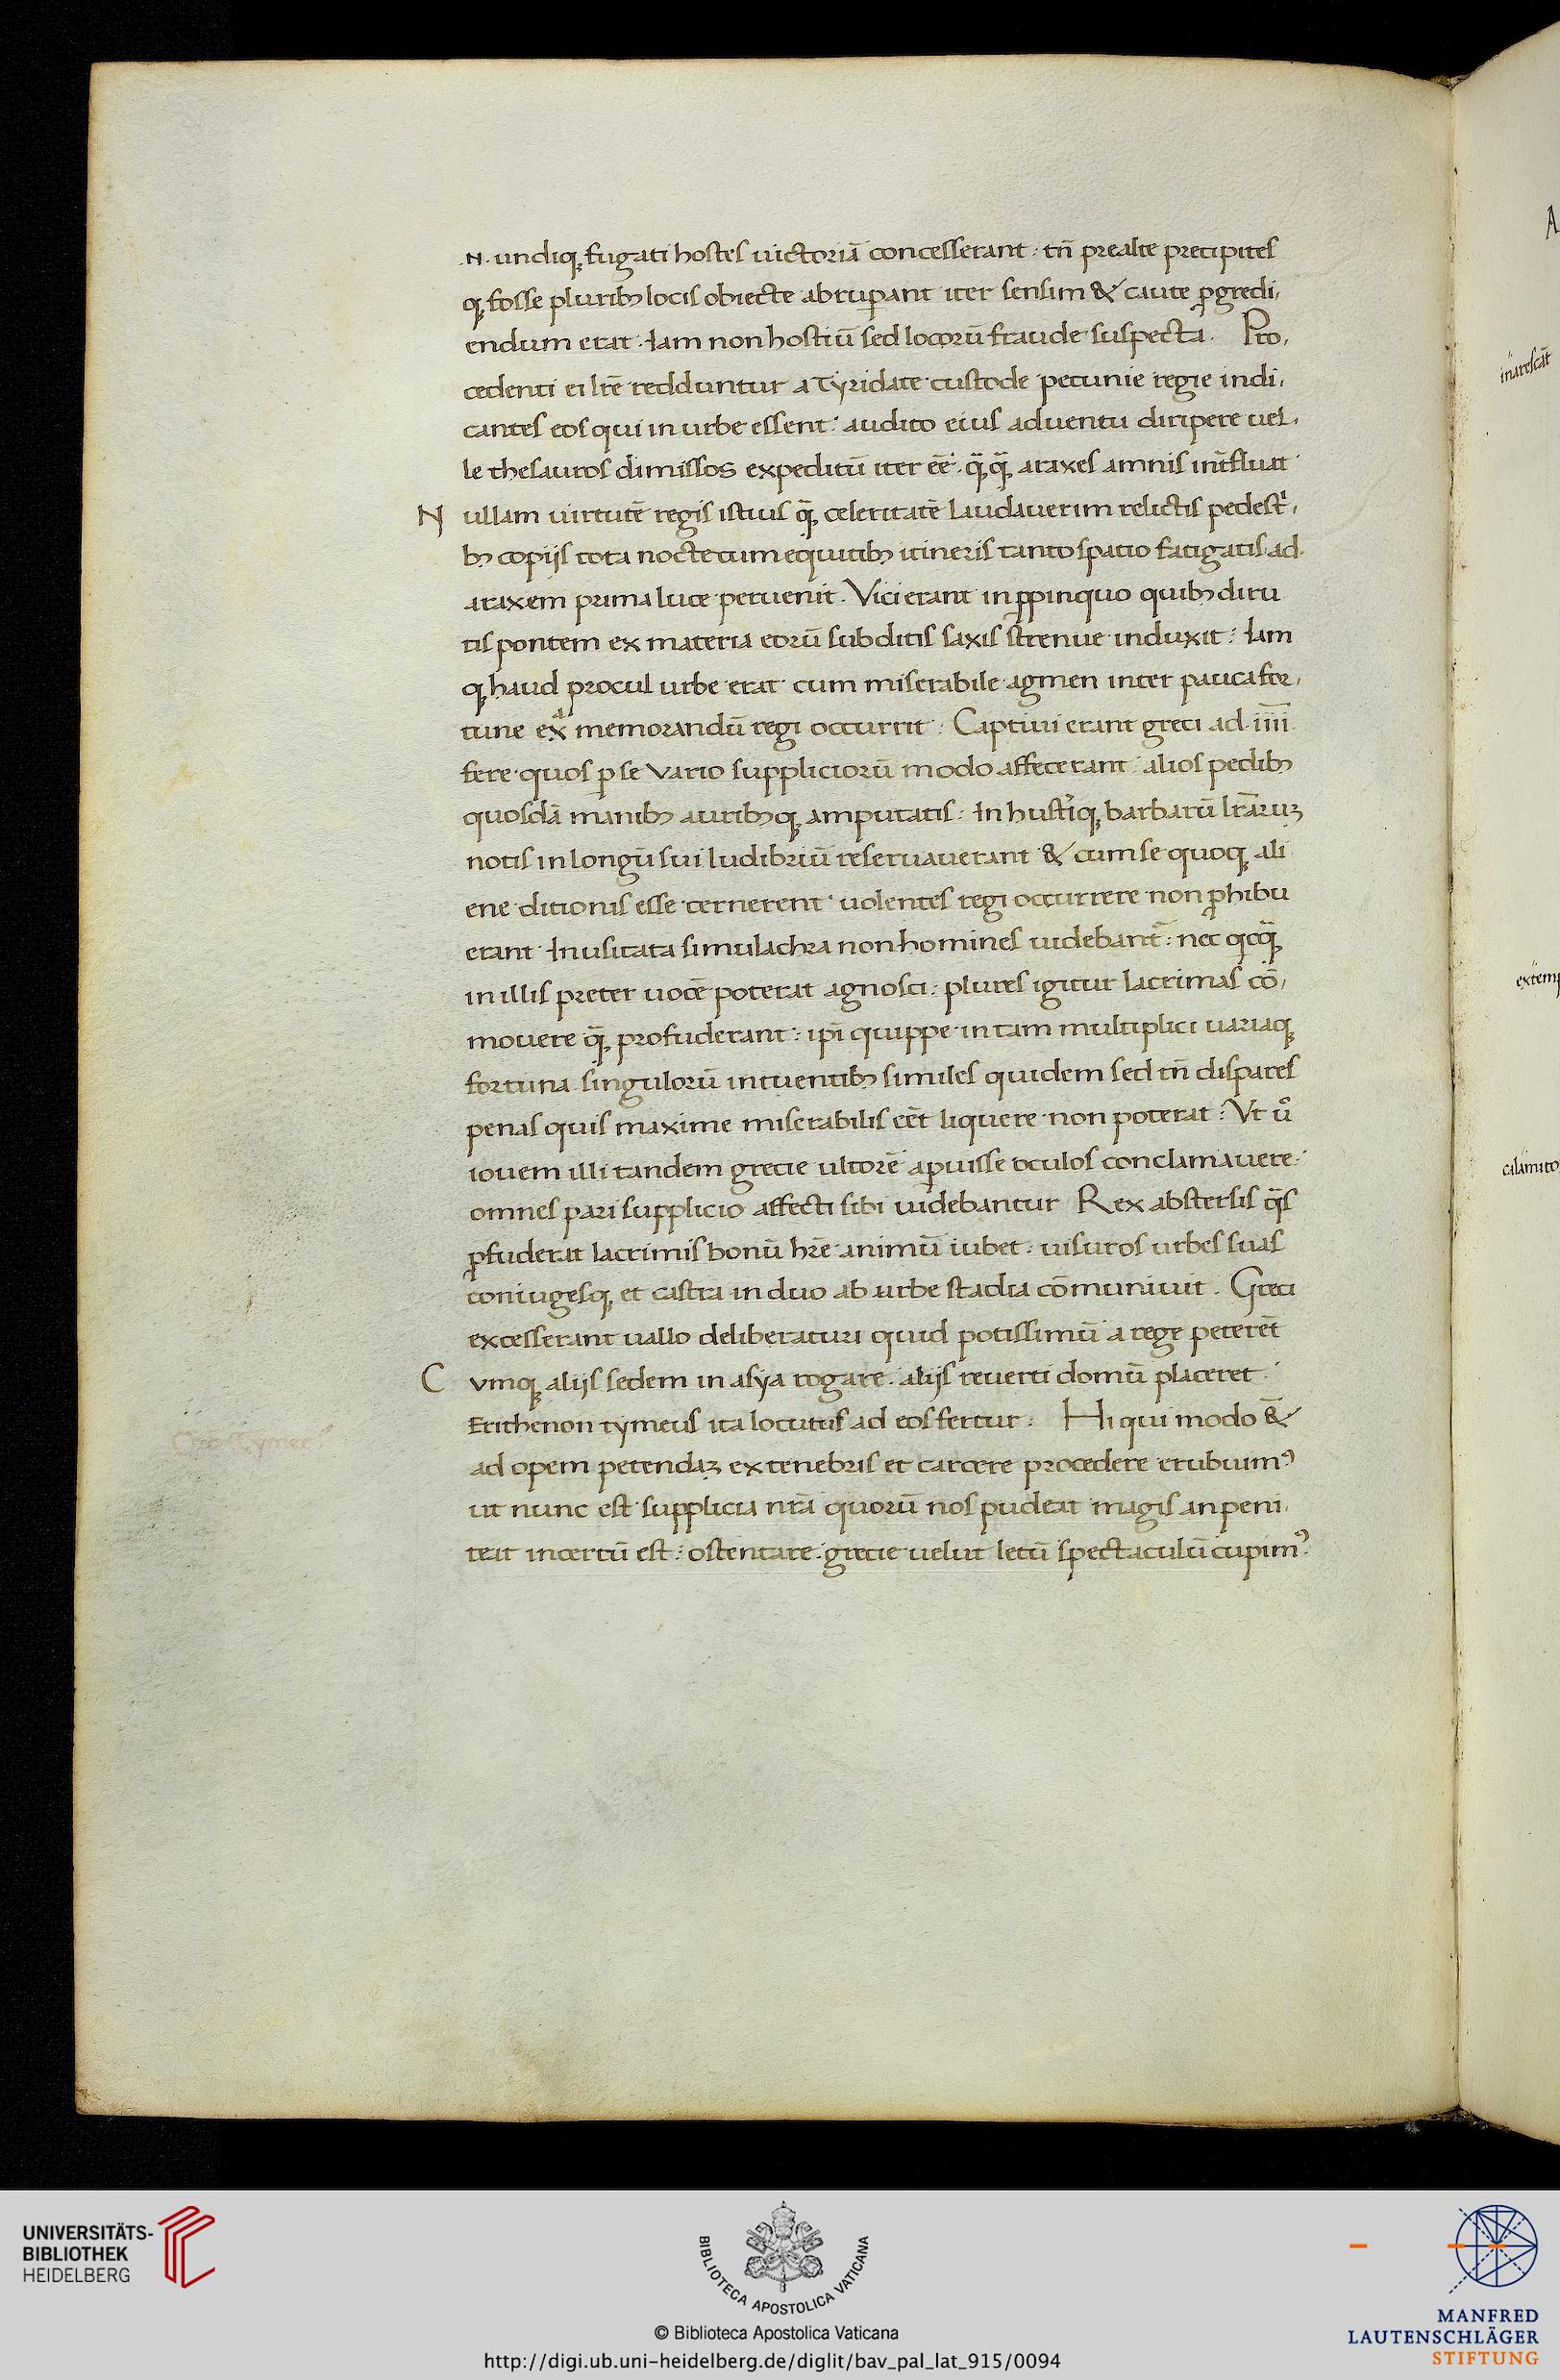 .N. undiq; fugati hostes uictoriā concesserant : tn̄ prealte precipites
q; fosse pluribꝫ locis obiecte abrupant iter sensim & caute ꝓgredi,
endum erat . Iam non hostiū sed locorū fraude suspecta . Pro,
cedenti ei lr̄e redduntur a Tyridate custode pecunie regie indi,
cantes eos qui in urbe essent : audito eius aduentu diripere uel,
le thesauros dimissos expeditū iter eē . q̄q̄ araxes amnis int̄fluat
N ullam uirtutē regis istius q̄ celeritatē laudauerim relictis pedestⁱ,
bꝫ copijs tota nocte cum equitibꝫ itineris tanto spatio fatigatis ad
araxem prima luce peruenit . Vici erant in ꝓpinquo quibꝫ diru
tis pontem ex materia eorū subditis saxis strenue induxit : Iam
q; haud procul urbe erat cum miserabile agmen inter pauca for,
tune exᵃ memorandū regi occurrit : Captiui erant greci ad iiii
fere quos ꝑse vario suppliciorū modo affecerant : alios pedibꝫ
quosdā manibꝫ auribꝫq; amputatis : In hustiq; barbarū lr̄arūꝫ
notis in longū sui ludibriū reseruauerant & cum se quoq; ali
ene ditionis esse cernerent uolentes regi occurrere non ꝓhibu
erant Inusitata simulachra non homines uidebant᷑ : nec qcq̄
in illis preter uocē poterat agnosci : plures igitur lacrimas cō,
mouere q̄ profuderant : ip̄i quippe in tam multiplici uariaq;
fortuna singulorū intuentibꝫ similes quidem sed tn̄ dispares
penas quis maxime miserabilis eēt liquere non poterat : Vt ūo
iouem illi tandem grecie ultorē aꝑuisse oculos conclamauere .
omnes pari supplicio affecti sibi uidebantur Rex abstersis q̄s
ꝓfuderat lacrimis bonū hr̄e animū iubet : uisuros urbes suas
coniugesq; et castra in duo ab urbe stadia cōmuniuit . Greci
excesserant uallo deliberaturi quid potissimū a rege peterēt
C vmq; alijs sedem in asya rogare . alijs reuerti domū placeret .
Erithenon tymeus ita locutus ad eos fertur : Hi qui modo &̄
ad opem petendaꝫ ex tenebris et carcere procedere erubuimꝰ
ut nunc est supplicia nr̄a quorū nos pudeat magis an peni,
teat incertū est : ostentare grecie uelut letū spectaculū cupimꝰ.
A
inarescāt
UNIVERSITÄTS-
BIBLIOTHEK
HEIDELBERG
BIBLIOTECA APOSTOLICA VATICANA
© Biblioteca Apostolica Vaticana
http://digi.ub.uni-heidelberg.de/diglit/bav_pal_lat_915/0094
MANFRED
LAUTENSCHLÄGER
STIFTUNG